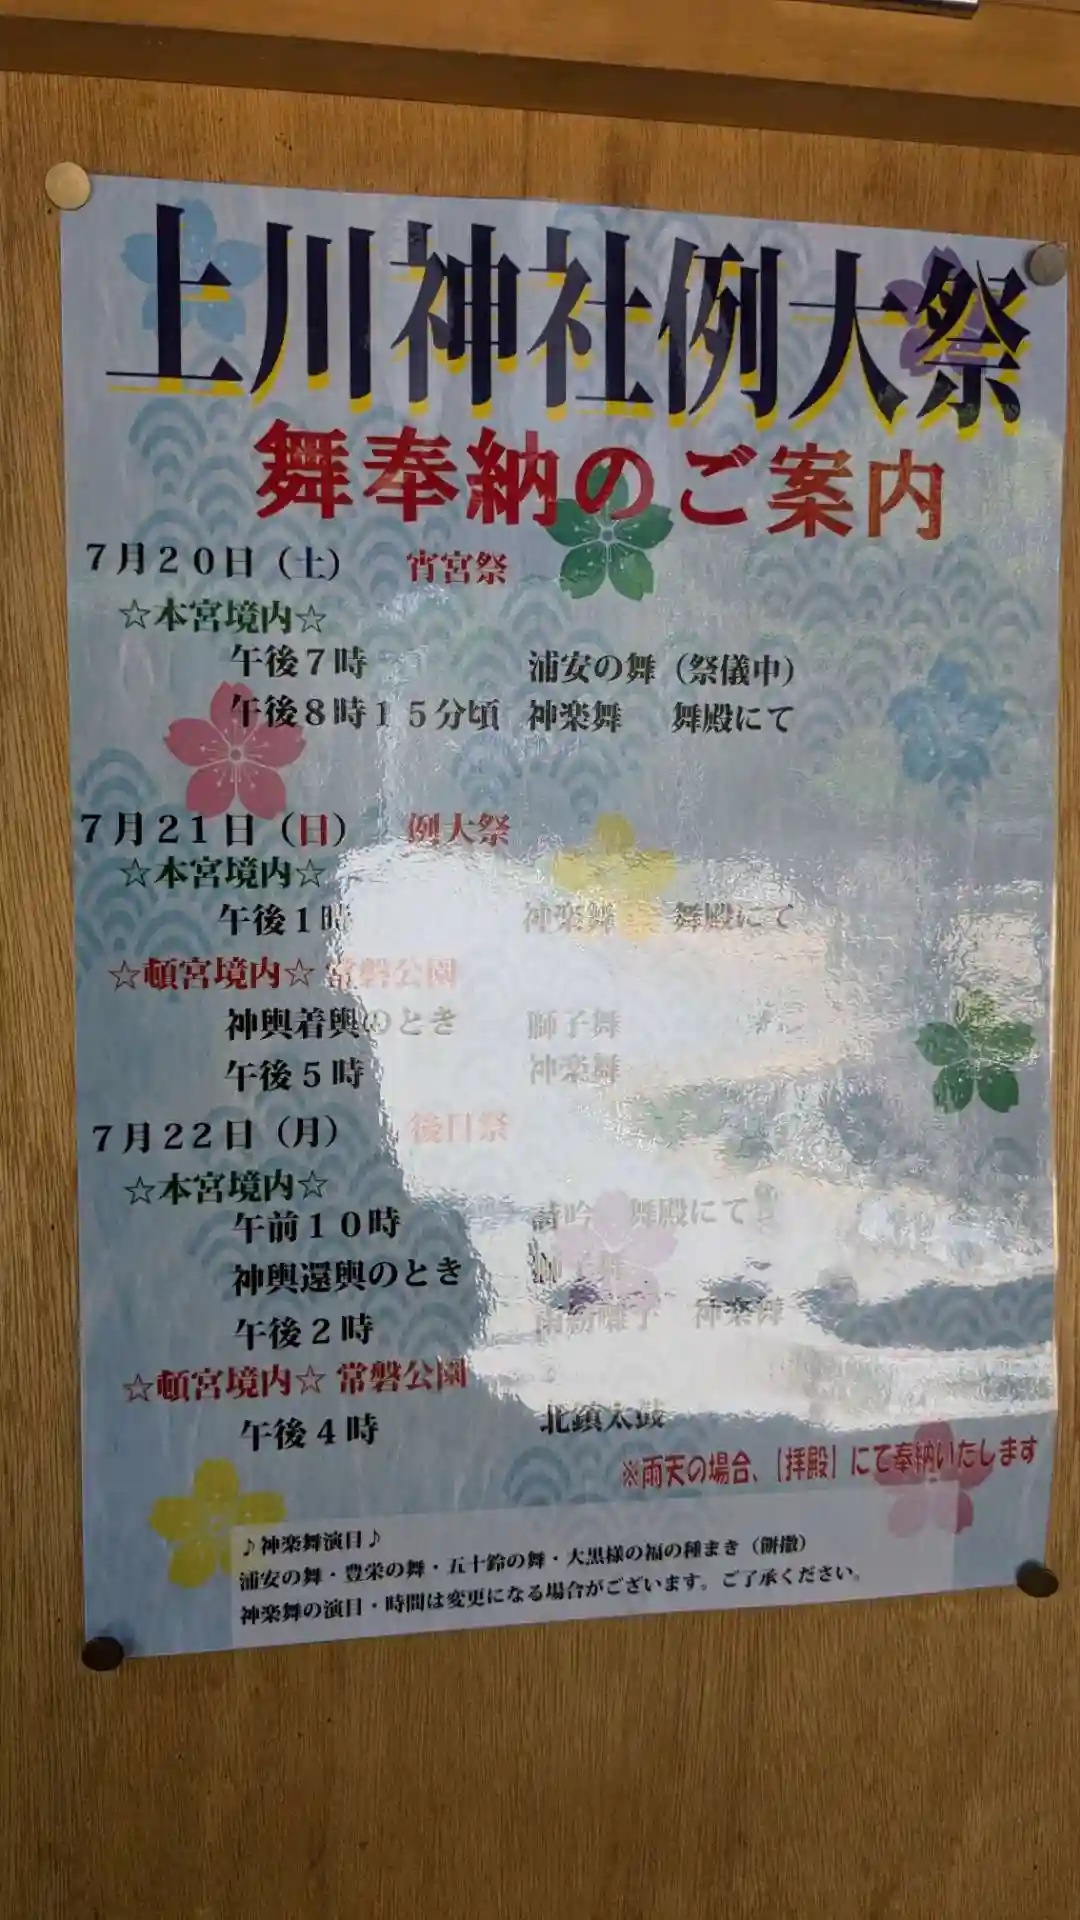 上川神社例大祭
舞奉納のご案内
7月20日（土） 宵宮祭
☆本宮境内☆
午後7時 浦安の舞（祭儀中）
午後8時15分頃 神楽舞 舞殿にて
7月21日（日） 例大祭
☆本宮境内☆
午後1時 神楽舞 舞殿にて
☆頓宮境内☆ 常磐公園
神輿着輿のとき 獅子舞
午後5時 神楽舞
7月22日（月） 後日祭
☆本宮境内☆
午前10時 詩吟 舞殿にて
神輿還輿のとき
午後2時 神楽舞
☆頓宮境内☆ 常磐公園
午後4時 北鎮太鼓
※雨天の場合、［拝殿］にて奉納いたします
♪神楽舞演目♪
浦安の舞・豊栄の舞・五十鈴の舞・大黒様の福の種まき（餅撒）
神楽舞の演目・時間は変更になる場合がございます。ご了承ください。